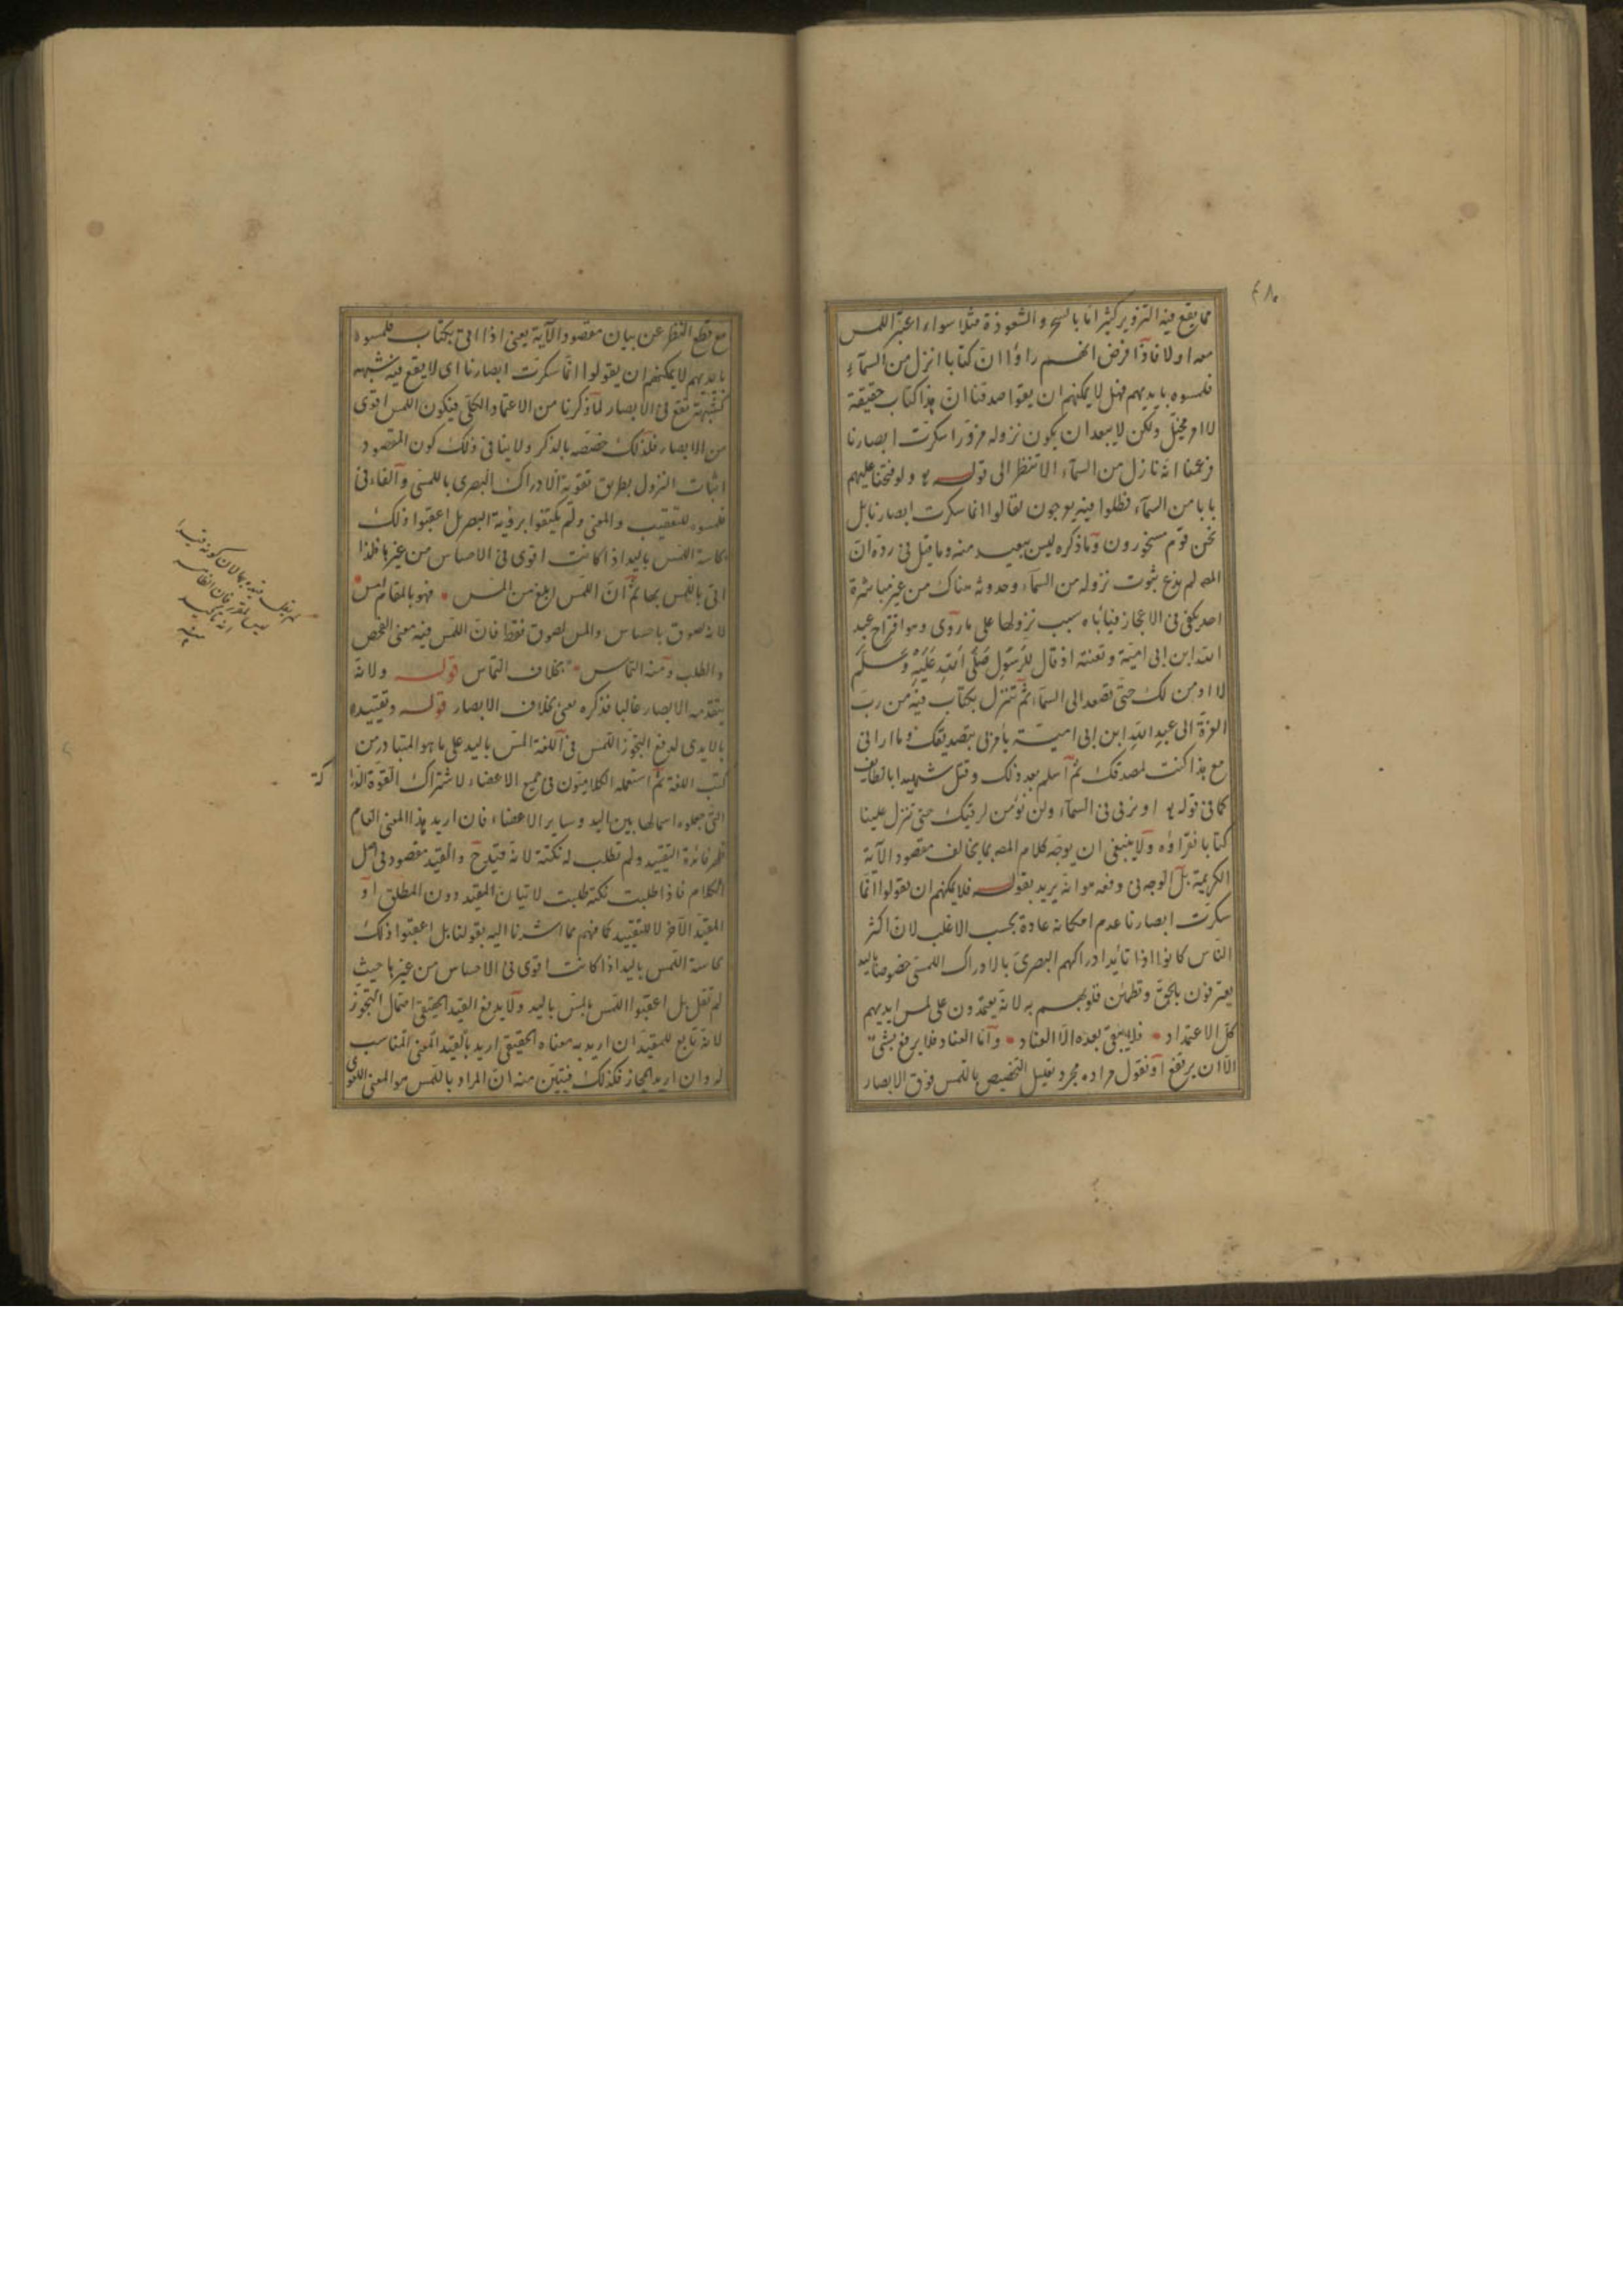 مما يقع فيه التزوير كثيرا اما بالسحر والشعوذة مثلا سواء اعتبر اللمس
معه او لا فاذا فرض انهم راؤا ان كتابا انزل من السمآء
فلمسوه بايديهم فهل لا يمكنهم ان يقوا صدقنا ان هذا كتاب حقيقة
لا امر مخيّل ولكن لا يبعد ان يكون نزوله مزورا سكرت ابصارنا
فزعمنا انه نازل من السمآء الا تنظر الى قوله ولو فتحنا عليهم
بابا من السمآء فظلوا فيه يعرجون لقالوا انما سكرت ابصارنا بل
نحن قوم مسحورون وما ذكره ليس ببعيد منه وما قيل فى رده ان
المصـ لم يدع ثبوت نزوله من السمآء وحدوثه هناك من غير مباشرة
احد يكفى فى الاعجاز فيأباه سبب نزولها على ما روى وهو اقتراح عبد
الله ابن ابى امية وتعنته اذ قال للرسول صلى الله عليه وسلم
لا اومن لك حتى تصعد الى السمآء ثم تنزل بكتاب فيه من رب
العزة الى عبد الله ابن ابى امية يأمرنى بتصديقك وما ارانى
مع هذا كنت لمصدقك ثم اسلم بعد ذلك وقتل شهيدا بالطايف
كما فى قوله او ترقى فى السمآء ولن نؤمن لرقيك حتى تنزل علينا
كتابا نقرؤه ولا ينبغى ان يوجه كلام المصـ بما يخالف مقصود الآية
الكريمة بل الوجه فى دفعه هو انه يريد بقوله فلا يمكنهم ان يقولوا انما
سكرت ابصارنا عدم امكانه عادة بحسب الاغلب لان اكثر
الناس كانوا اذا تأيد ادراكهم البصرى بالادراك اللمسى خصوصا باليد
يعترفون بالحق وتطمئن قلوبهم به لانه يعتمدون على لمس ايديهم
كل الاعتماد فلا يبقى بعده الا العناد وأما العناد فلا يرفع بشئ
الا ان يرتفع او نقول مراده مجرد تعليل التخصيص باللمس فوق الابصار
مع قطع النظر عن بيان مقصود الآية يعنى اذا اتى بكتاب فلمسوه
بايديهم لا يمكنهم ان يقولوا انما سكرت ابصارنا اى لا يقع فيه شبهة
كشبهة تقع فى الابصار لما ذكرنا من الاعتماد الكلى فيكون اللمس اقوى
من الابصار فلذلك خصه بالذكر ولا ينافى ذلك كون المقصود
اثبات النزول بطريق تقوية الادراك البصرى باللمسى والفاء فى
فلمسوه للتعقيب والمعنى ولم يكتفوا برؤية البصر بل اعقبوا ذلك
بحاسة اللمس باليد اذا كانت اقوى فى الاحساس من غيرها فلذا
اتى باللمس بها ثم ان اللمس ابلغ من المس فهو بالمقام امس
لانه لصوق باحساس والمس لصوق فقط فان اللمس فيه معنى الفحص
والطلب ومنه التماس بخلاف التماس قوله ولانه
يتقدمه الابصار غالبا فذكره يعنى بخلاف الابصار قوله وتقييده
بالايدى لدفع التجوز اللمس فى اللغة المس باليد على ما هو المتبادر من
كتب اللغة ثم استعمله الكلاميون فى جميع الاعضاء لاشتراك القوة الدرا
كة
التى جعلوه اسما لها بين اليد وساير الاعضاء فان اريد هذا المعنى العام
ظهر فائدة التقييد ولم تطلب له نكتة لانه قيد ح والقيد مقصود فى اصل
الكلام فاذا طلبت نكتة طلبت لاتيان المقيد دون المطلق او
المقيد الآخر لا للتقييد كما فهم مما اشرنا اليه بقولنا بل اعقبوا ذلك
بحاسة اللمس باليد اذا كانت اقوى فى الاحساس من غيرها حيث
لم نقل بل اعقبوا اللمس بلمس باليد ولا يدفع القيد الحقيقى احتمال التجوز
لانه تابع للمقيد ان اريد به معناه الحقيقى اريد بالقيد المعنى المناسب
له وان اريد المجاز فكذلك فتبين منه ان المراد باللمس هو المعنى اللغوى